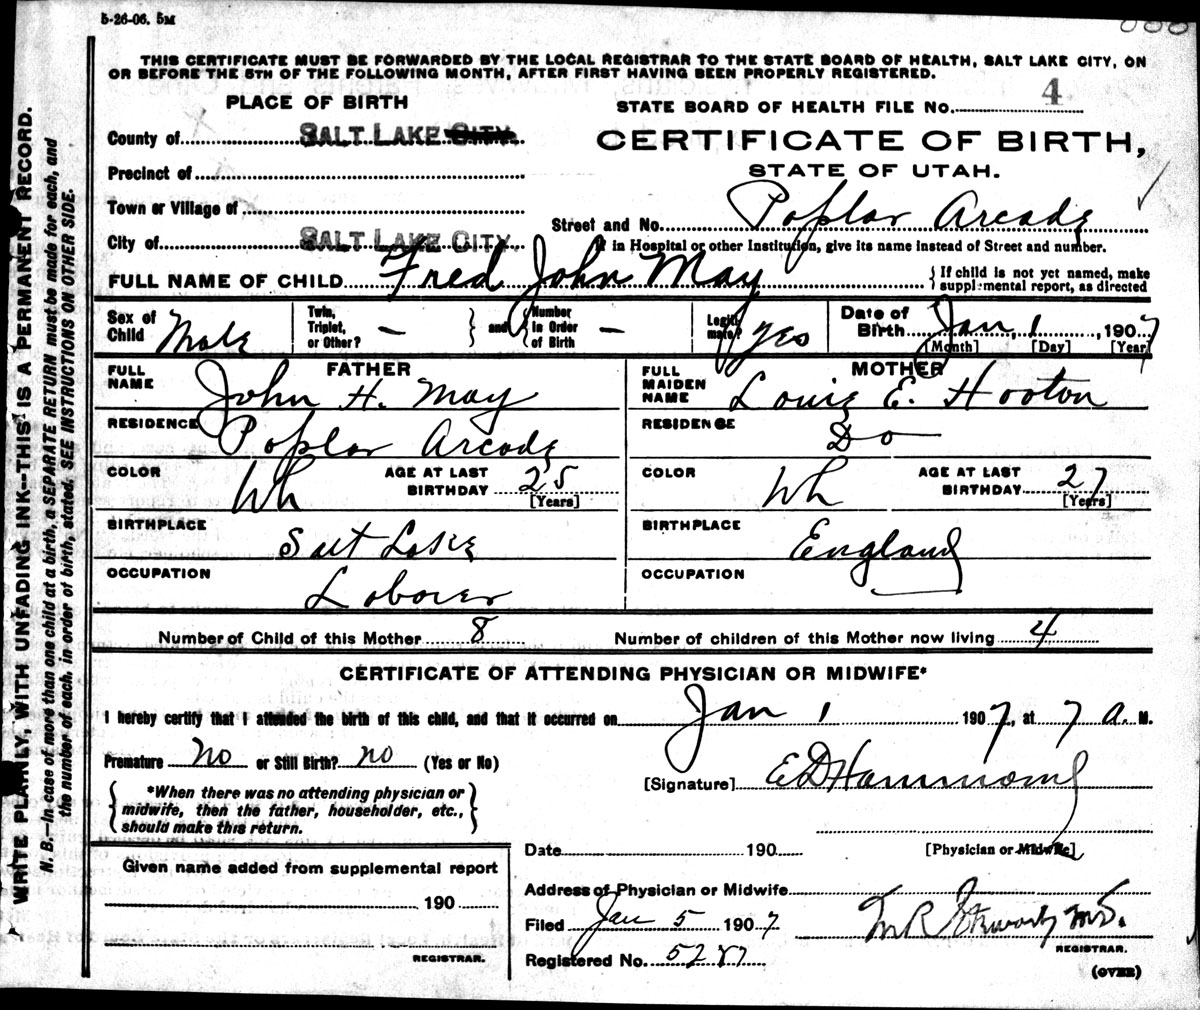 5-26-06. 5M
THIS CERTIFICATE MUST BE FORWARDED BY THE LOCAL REGISTRAR TO THE STATE BOARD OF HEALTH, SALT LAKE CITY, ON
OR BEFORE THE 5TH OF THE FOLLOWING MONTH, AFTER FIRST HAVING BEEN PROPERLY REGISTERED.
WRITE PLAINLY, WITH UNFADING INK--THIS IS A PERMANENT RECORD.
N. B.—In case of more than one child at a birth, a SEPARATE RETURN must be made for each, and
the number of each, in order of birth, stated. SEE INSTRUCTIONS ON OTHER SIDE.
PLACE OF BIRTH
County of SALT LAKE CITY
Precinct of
Town or Village of
City of SALT LAKE CITY
STATE BOARD OF HEALTH FILE NO. 4
CERTIFICATE OF BIRTH,
STATE OF UTAH.
Street and No. Poplar Arcade
If in Hospital or other Institution, give its name instead of Street and number.
FULL NAME OF CHILD Fred John May
{ If child is not yet named, make
supplemental report, as directed
Sex of Child Male
Twin, Triplet, or Other? —
and Number in Order of Birth —
Legitimate? yes
Date of Birth Jan 1, 1907
[Month] [Day] [Year]
FATHER
FULL NAME John H. May
RESIDENCE Poplar Arcade
COLOR Wh AGE AT LAST BIRTHDAY 25
[Years]
BIRTHPLACE Salt Lake
OCCUPATION Laborer
MOTHER
FULL MAIDEN NAME Louie E. Hooton
RESIDENCE Do
COLOR Wh AGE AT LAST BIRTHDAY 27
[Years]
BIRTHPLACE England
OCCUPATION
Number of Child of this Mother 8 Number of children of this Mother now living 4
CERTIFICATE OF ATTENDING PHYSICIAN OR MIDWIFE*
I hereby certify that I attended the birth of this child, and that it occurred on Jan 1 1907, at 7 a. M.
Premature no or Still Birth? no (Yes or No)
[Signature] E D Hammond
{ *When there was no attending physician or
midwife, then the father, householder, etc.,
should make this return. }
Date 190 [Physician or Midwife]
Given name added from supplemental report
190
REGISTRAR.
Address of Physician or Midwife
Filed Jan 5 1907
REGISTRAR.
Registered No. 5287
(OVER)